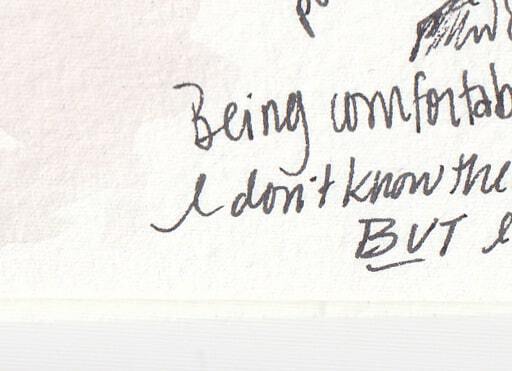 Being comfortab
I don't know the
BUT I